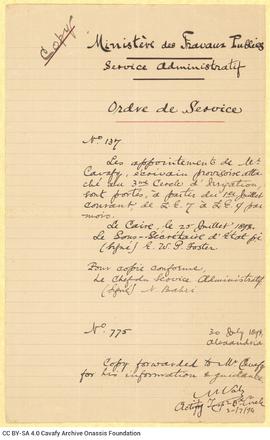 Copy
Ministère des Travaux Publics
Service Administratif
Ordre de Service
No 137
Les appointements de Mr
Cavafy, écrivain provisoire atta-
ché au 3me Cercle d'Irrigation,
sont portés, à partir du 1er Juillet
courant de L.E. 7 à L.E. 9 par
mois.
Le Caire, le 25 Juillet
Le Sous-Secrétaire d'Etat p.i
(signé) E. W. P. Foster
Pour copie conforme,
Le Chef du Service Administratif
(signé) N.
No. 775
30 July
Alexandria
Copy forwarded to Mr Cavafy
for his information & guidance
CC BY-SA 4.0 Cavafy Archive Onassis Foundation